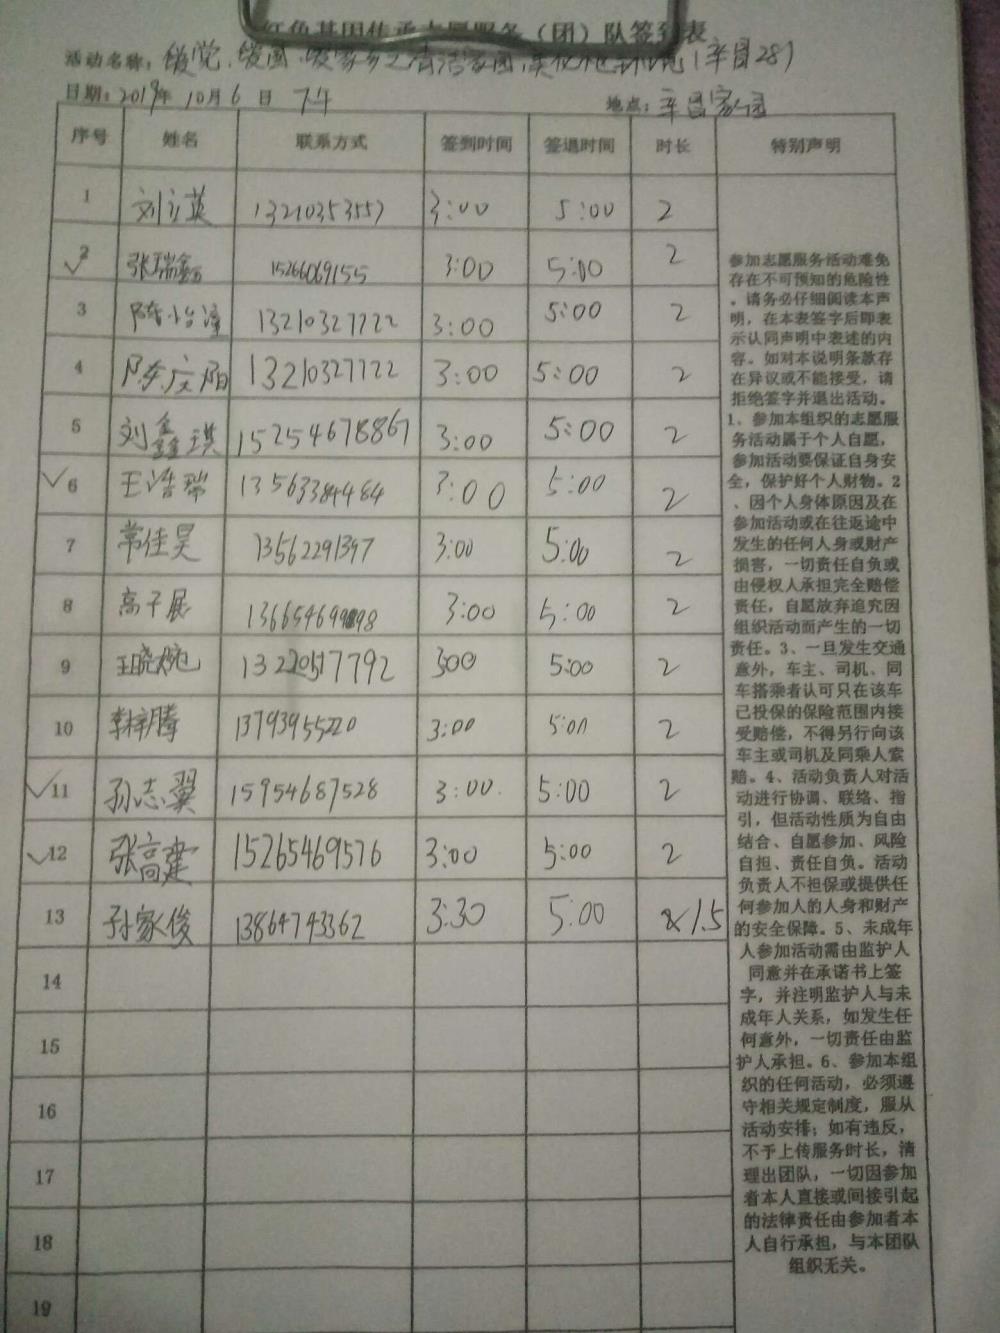 红色基因传承志愿服务（团）队签到表
活动名称：
日期：2019年 10月 6 日 下午
地点：辛昌家园
序号 姓名 联系方式 签到时间 签退时间 时长 特别声明
1 刘立英 13210353557 3:00 5:00 2
2 张瑞鑫 15266069155 3:00 5:00 2
3 13210327722 3:00 5:00 2
4 陈庆阳 13210327722 3:00 5:00 2
5 刘鑫琪 15254678867 3:00 5:00 2
6 王浩瑞 13563384484 3:00 5:00 2
7 常佳昊 13562291397 3:00 5:00 2
8 高子展 3:00 5:00 2
9 王晓婉 300 5:00 2
10 李梓腾 13793955220 3:00 5:00 2
11 孙志翼 15954687528 3:00 5:00 2
12 张高建 15265469576 3:00 5:00 2
13 孙家俊 13864743362 3:30 5:00 1.5
14
15
16
17
18
19
参加志愿服务活动难免
存在不可预知的危险性
。请务必仔细阅读本声
明，在本表签字后即表
示认同声明中表述的内
容。如对本说明条款存
在异议或不能接受，请
拒绝签字并退出活动。
1、参加本组织的志愿服
务活动属于个人自愿，
参加活动要保证自身安
全，保护好个人财物。2
、因个人身体原因及在
参加活动或在往返途中
发生的任何人身或财产
损害，一切责任自负或
由侵权人承担完全赔偿
责任，自愿放弃追究因
组织活动而产生的一切
责任。3、一旦发生交通
意外，车主、司机、同
车搭乘者认可只在该车
已投保的保险范围内接
受赔偿，不得另行向该
车主或司机及同乘人索
赔。4、活动负责人对活
动进行协调、联络、指
引，但活动性质为自由
结合、自愿参加、风险
自担、责任自负。活动
负责人不担保或提供任
何参加人的人身和财产
的安全保障。5、未成年
人参加活动需由监护人
同意并在承诺书上签
字，并注明监护人与未
成年人关系，如发生任
何意外，一切责任由监
护人承担。6、参加本组
织的任何活动，必须遵
守相关规定制度，服从
活动安排；如有违反，
不予上传服务时长，清
理出团队，一切因参加
者本人直接或间接引起
的法律责任由参加者本
人自行承担，与本团队
组织无关。